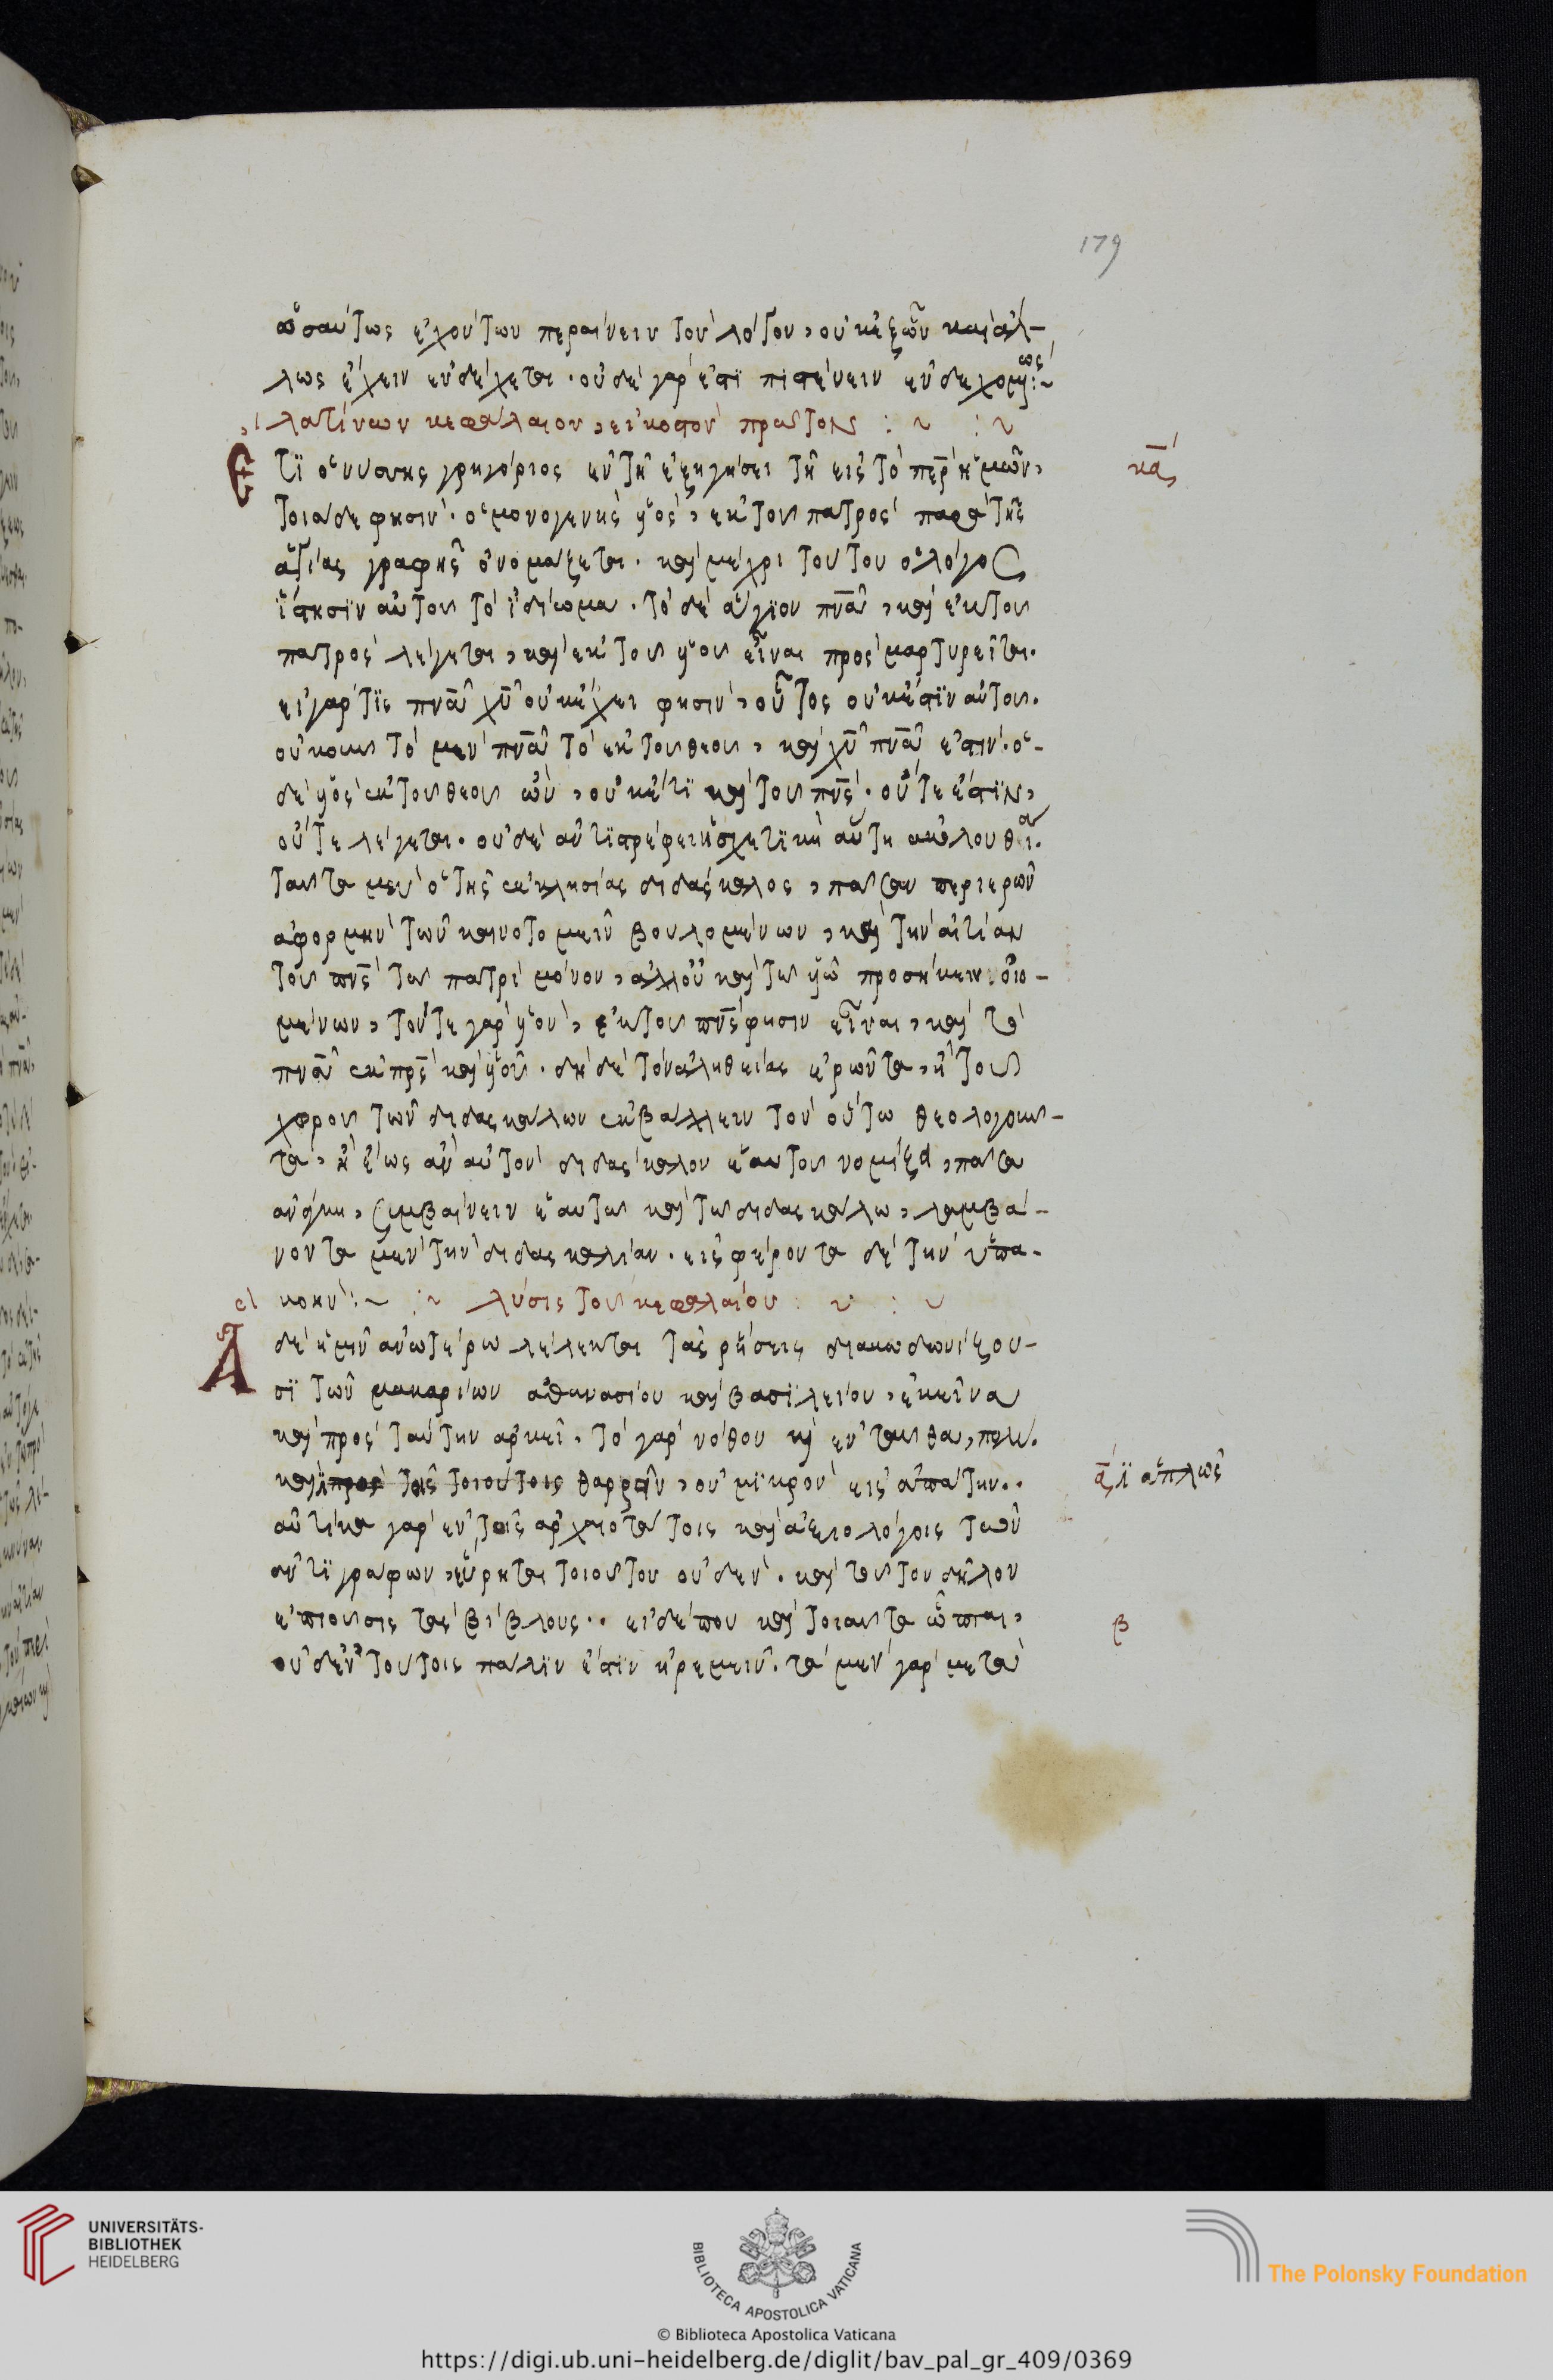 179
ὡσαύτως ἐχόντων περαίνειν τὸν λόγον, οὐκ ἐξ ὧν καὶ ἄλ-
λως ἔχειν ἐνδέχεται. οὐδὲ γὰρ ἔστι πιστεύειν ἐνδεχομένως:~
λατίνων κεφάλαιον, εἰκοστὸν πρῶτον : ~ : ~
κᾱ
Ἔτι ὁ νύσσης γρηγόριος ἐν τῇ ἐξηγήσει τῇ εἰς τὸ πε̅ρ ἡμῶν,
τοιάδε φησίν. ὁ μονογενὴς ὑὸς, ἐκ τοῦ πατρὸς παρὰ τῆς
ἁγίας γραφῆς ὀνομάζεται. καὶ μέχρι τούτου ὁ λόγος
ἵστησιν αὐτοῦ τὸ ἰδίωμα. τὸ δὲ ἅγιον πν̅α, καὶ ἐκ τοῦ
πατρὸς λέγεται, καὶ ἐκ τοῦ ὑοῦ εἶναι προσμαρτυρεῖται.
εἰ γάρ τις πν̅α χ̅υ οὐκ ἔχει φησὶν, οὗτος οὐκ ἔστιν αὐτοῦ.
οὐκοῦν τὸ μὲν πν̅α τὸ ἐκ τοῦ θεοῦ, καὶ χ̅υ πν̅α ἐστίν. ὁ-
δὲ ὑὸς ἐκ τοῦ θεοῦ ὢν, οὐκέτι καὶ τοῦ πν̅ς. οὔτε ἐστὶν,
οὔτε λέγεται. οὐδὲ ἀντιστρέφει ἡ σχετικὴ αὕτη ἀκολουθία.
ταῦτα μὲν ὁ τῆς ἐκκλησίας διδάσκαλος, πᾶσαν περιαιρῶν
ἀφορμὴν τῶν καινοτομεῖν βουλομένων, καὶ τὴν αἰτίαν
τοῦ πν̅ς τῷ πατρὶ μόνον, ἀλλ' οὐ καὶ τῷ ὑῷ προσήκειν οἰο-
μένων, τόν τε γὰρ ὑὸν, ἐκ τοῦ π̅ρ̅ς φησιν εἶναι, καὶ τὸ
πν̅α ἐκ π̅ρ̅ς καὶ ὑοῦ. δεῖ δὲ τὸν ἀληθείας ἐρῶντα, ἢ τοῦ
χοροῦ τῶν διδασκάλων ἐκβάλλειν τὸν οὕτω θεολογοῦν-
τα, ἢ ἕως ἂν αὐτὸν διδάσκαλον ἑαυτοῦ νομίζῃ, πᾶσα
ἀνάγκη, συμβαίνειν ἑαυτῷ καὶ τῷ διδασκάλῳ, λαμβά-
νοντα μὲν τὴν διδασκαλίαν. εἰσφέροντα δὲ τὴν ὑπα-
κοήν:~ :~ λύσις τοῦ κεφαλαίου : ~ : ~
Ἃ δὲ ἡμῖν ἀνωτέρω λέλεκται τὰς ῥήσεις διακωδωνίζου-
σι τῶν μακαρίων ἀθανασίου καὶ βασιλείου, ἐκεῖνα
καὶ πρὸς ταύτην ἀρκεῖ. τὸ γὰρ νόθον κἀνταῦθα, πολύ.
καὶ τὸ τοῖς τοιούτοις θαρρεῖν, οὐ μικρὸν εἰς ἀπάτην..
ᾱ ἁπλῶς
αὐτίκα γὰρ ἐν τοῖς ἀρχαιοτάτοις καὶ ἀξιολόγοις τῶν
ἀντιγράφων, εὕρηται τοιοῦτον οὐδέν. καὶ τοῦτο δῆλον
ἐπιοῦσι τὰς βίβλους.. εἰ δέ που καὶ τοιαῦτα ὦπται,
β
οὐδὲν τούτοις πάλιν ἐστὶν ἠρεμεῖν. τὰ μὲν γὰρ μετὰ
UNIVERSITÄTS-
BIBLIOTHEK
HEIDELBERG
BIBLIOTECA APOSTOLICA VATICANA
The Polonsky Foundation
© Biblioteca Apostolica Vaticana
https://digi.ub.uni-heidelberg.de/diglit/bav_pal_gr_409/0369